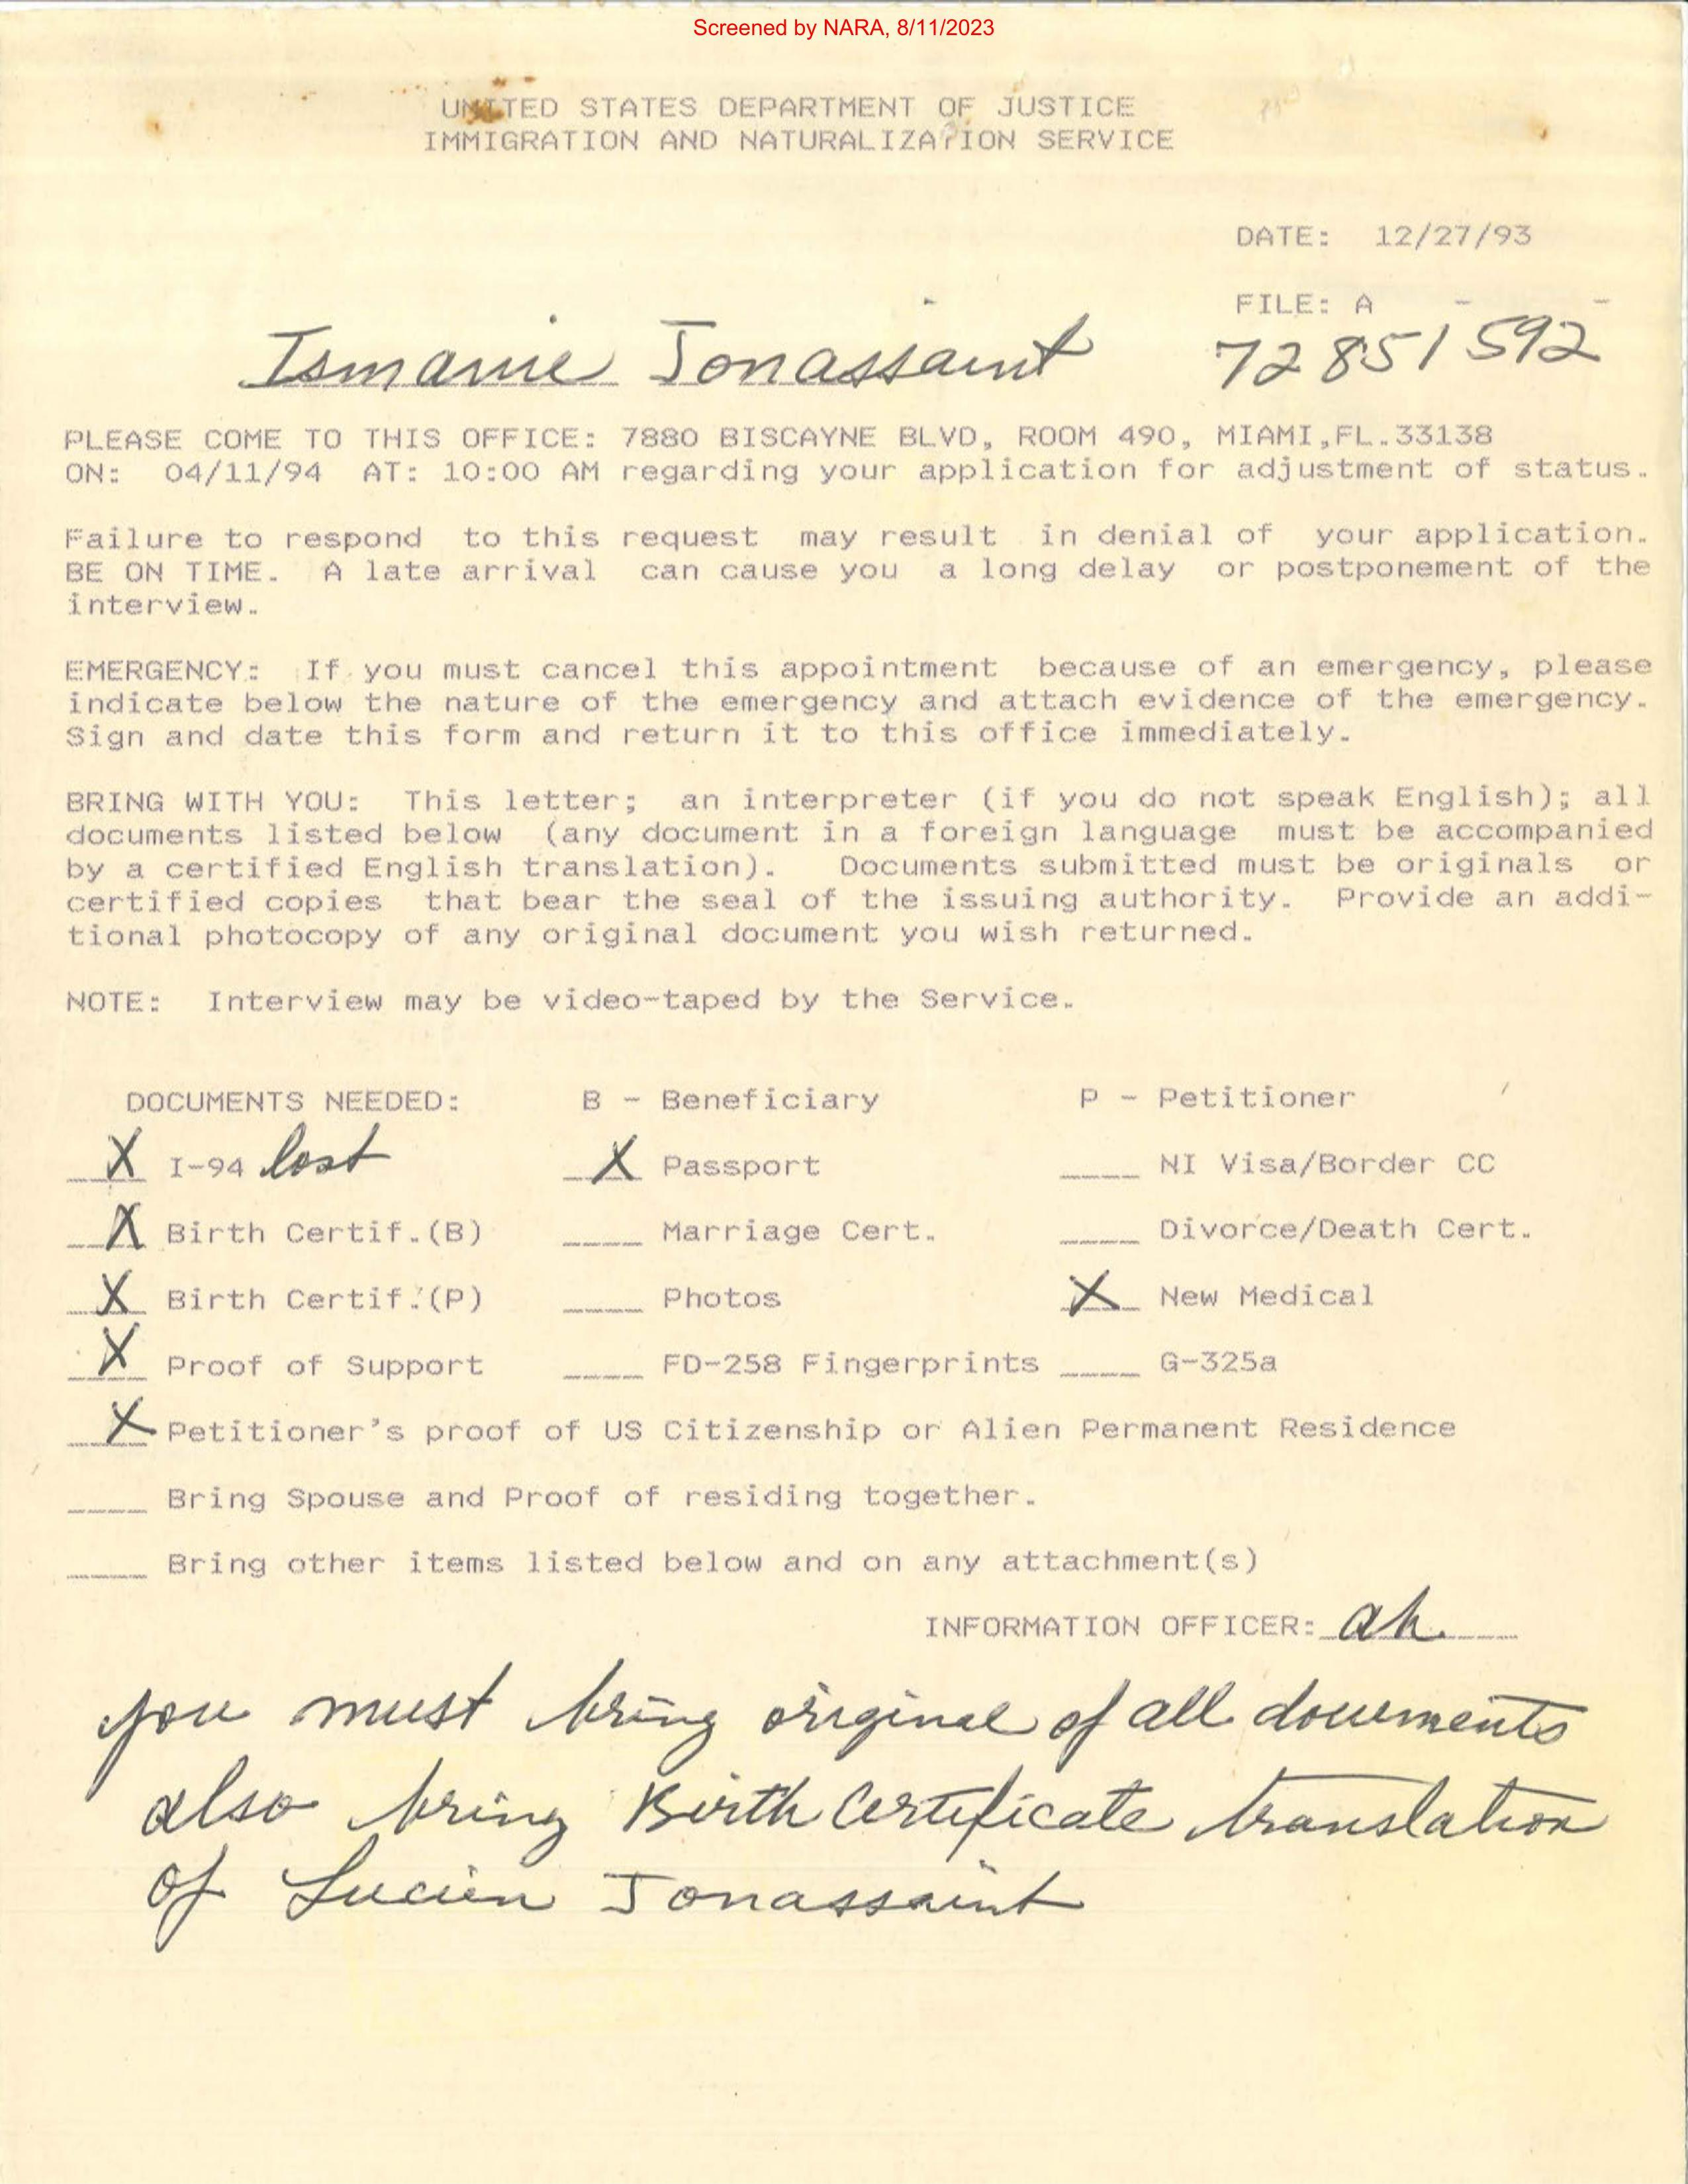 Screened by NARA, 8/11/2023
UNITED STATES DEPARTMENT OF JUSTICE
IMMIGRATION AND NATURALIZATION SERVICE
DATE: 12/27/93
FILE: A - -
Ismanie Jonassaint 72851592
PLEASE COME TO THIS OFFICE: 7880 BISCAYNE BLVD, ROOM 490, MIAMI,FL.33138
ON: 04/11/94 AT: 10:00 AM regarding your application for adjustment of status.
Failure to respond to this request may result in denial of your application.
BE ON TIME. A late arrival can cause you a long delay or postponement of the
interview.
EMERGENCY: If you must cancel this appointment because of an emergency, please
indicate below the nature of the emergency and attach evidence of the emergency.
Sign and date this form and return it to this office immediately.
BRING WITH YOU: This letter; an interpreter (if you do not speak English); all
documents listed below (any document in a foreign language must be accompanied
by a certified English translation). Documents submitted must be originals or
certified copies that bear the seal of the issuing authority. Provide an addi-
tional photocopy of any original document you wish returned.
NOTE: Interview may be video-taped by the Service.
DOCUMENTS NEEDED: B - Beneficiary P - Petitioner
X I-94 lost X Passport ____ NI Visa/Border CC
X Birth Certif.(B) ____ Marriage Cert. ____ Divorce/Death Cert.
X Birth Certif.(P) ____ Photos X New Medical
X Proof of Support ____ FD-258 Fingerprints ____ G-325a
X Petitioner's proof of US Citizenship or Alien Permanent Residence
____ Bring Spouse and Proof of residing together.
____ Bring other items listed below and on any attachment(s)
INFORMATION OFFICER: ah.
you must bring original of all documents
also bring Birth Certificate translation
of Lucien Jonassaint